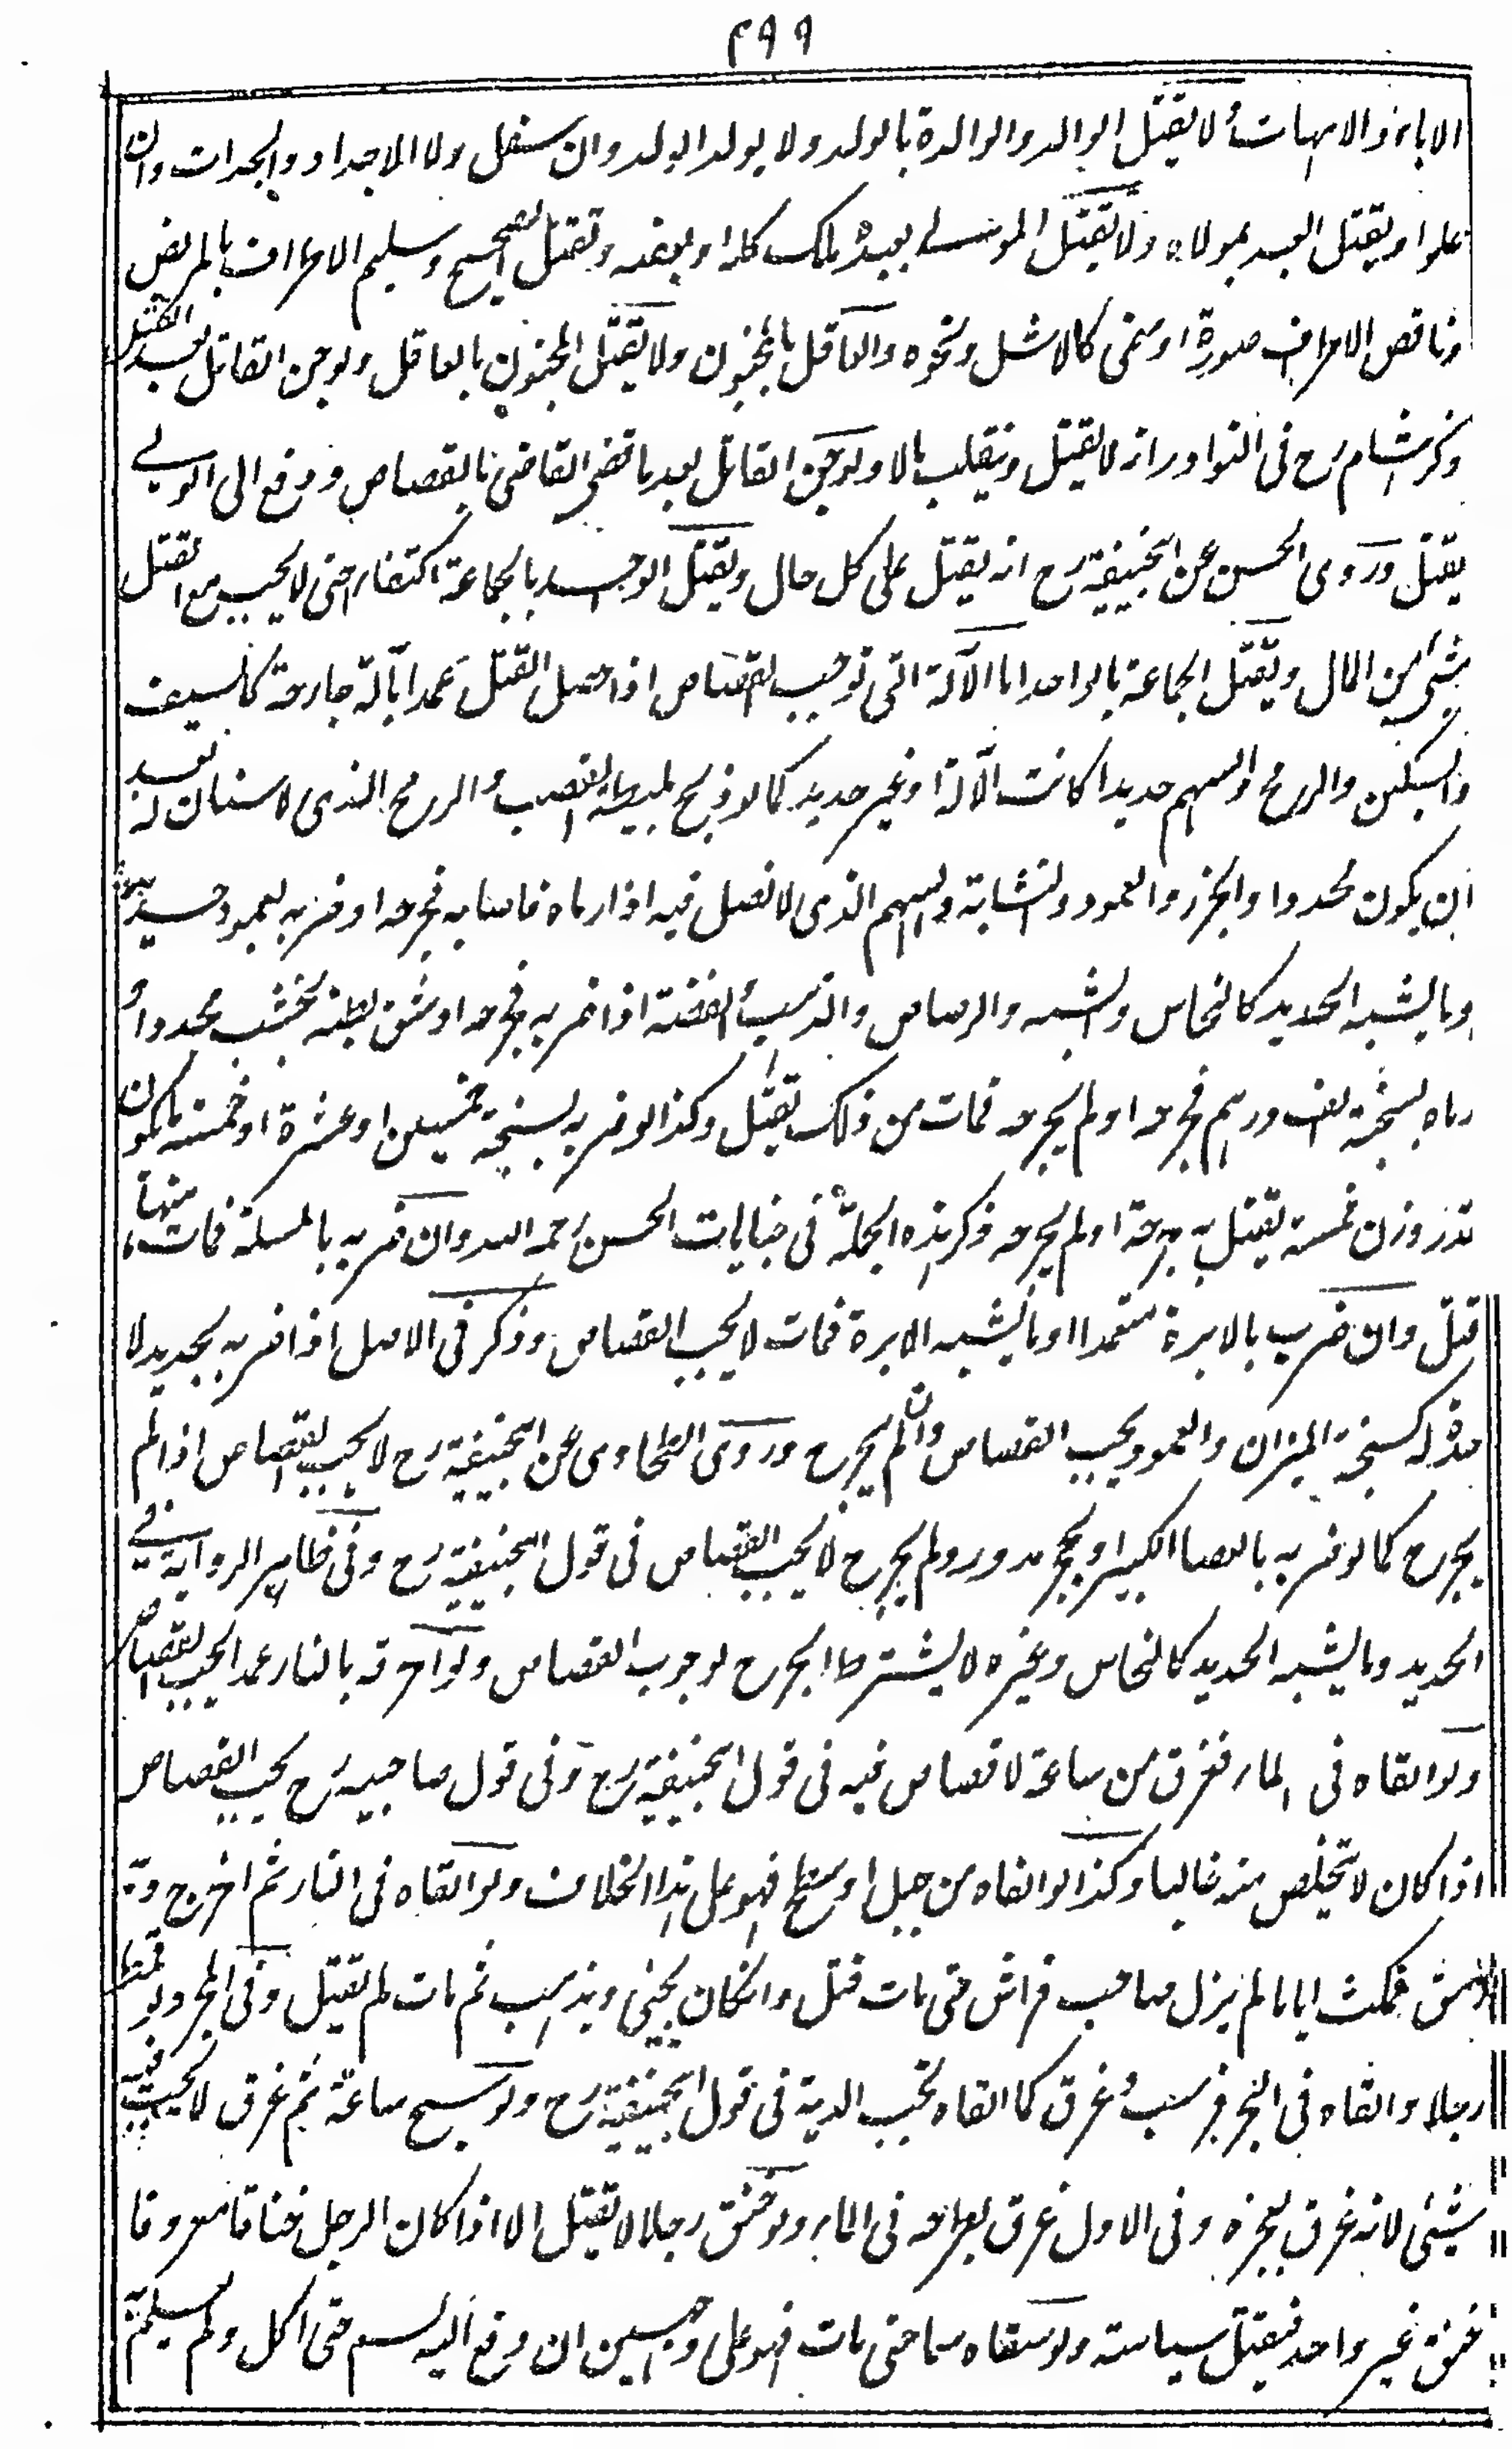 ٤٩٩
الاباء والامهات لا يقتل الوالد والوالدة بالولد ولا بولد الولد وان سفل ولا الاجداد والجدات وان
علوا ويقتل العبد بمولاه ولا يقتل المولى بعبد ملك كله او بعضه ويقتل الصحيح وسليم الاطراف بالمريض
وناقص الاطراف صورة او معنى كالاشل ونحوه والعاقل بالمجنون ولا يقتل المجنون بالعاقل ولو جن القاتل بعد القتل
ذكر هشام رح فى النوادر انه لا يقتل وينقلب مالا ولو جن القاتل بعد ما قضى القاضى بالقصاص ودفع الى الولى
يقتل وروى الحسن عن ابيحنيفة رح انه يقتل على كل حال ويقتل الواحد بالجماعة اكتفاء حتى لا يجب مع القتل
شئ من المال ويقتل الجماعة بالواحد اما الآلة التى توجب القصاص اذا حصل القتل عمدا بآلة جارحة كالسيف
والسكين والرمح والسهم حديدا كانت الآلة او غير حديد كما لو ذبح بليطة القصب والرمح الذى لا سنان له بعد
ان يكون محددا والجزر والعمود والنشابة والسهم الذى لا نصل فيه اذا رماه فاصابه فجرحه او ضربه بعمود حديد
وما يشبه الحديد كالنحاس والشبه والرصاص والذهب والفضة اذا ضربه فجرحه او شق بطنه بخشب محدد او
رماه بسنجة الف درهم فجرحه او لم يجرحه فمات من ذلك يقتل وكذا لو ضربه بسنجة خمسين او عشرة او خمسة يكون
قدر وزن خمسة يقتل به جرحه او لم يجرحه ذكر هذه الجملة فى جنايات الحسن رحمه الله وان ضربه بالمسلة فمات منها
قتل وان ضرب بالابرة متعمدا او ما يشبه الابرة فمات لا يجب القصاص وذكر فى الاصل اذا ضربه بحديد لا
حدة له كسنجة الميزان والعمود يجب القصاص وان لم يجرح وروى الطحاوى عن ابيحنيفة رح لا يجب القصاص اذا لم
يجرح كما لو ضربه بالعصا الكبير او بحجر مدور ولم يجرح لا يجب القصاص فى قول ابيحنيفة رح وفى ظاهر الرواية فى
الحديد وما يشبه الحديد كالنحاس وغيره لا يشترط الجرح لوجوب القصاص ولو احرقه بالنار عمدا يجب القصاص
ولو القاه فى الماء فغرق من ساعة لا قصاص فيه فى قول ابيحنيفة رح وفى قول صاحبيه رح يجب القصاص
اذا كان لا يتخلص منه غالبا وكذا لو القاه من جبل او سطح فهو على هذا الخلاف ولو القاه فى النار ثم اخرج وبه
رمق فمكث اياما لم يزل صاحب فراش حتى مات قتل وانكان يجئ ويذهب ثم مات لم يقتل وفى المجرد لو قمط
رجلا والقاه فى البحر فرسب وغرق كما القاه تجب الدية فى قول ابيحنيفة رح ولو سبح ساعة ثم غرق لا يجب فيه
شئ لانه غرق بعجزه وفى الاول غرق بطرحه فى الماء ولو خنق رجلا لا يقتل الا اذا كان الرجل خناقا معروفا
خنق غير واحد فيقتل سياسة ولو سقاه سما حتى مات فهو على وجهين ان دفع اليه السم حتى اكل ولم يعلم